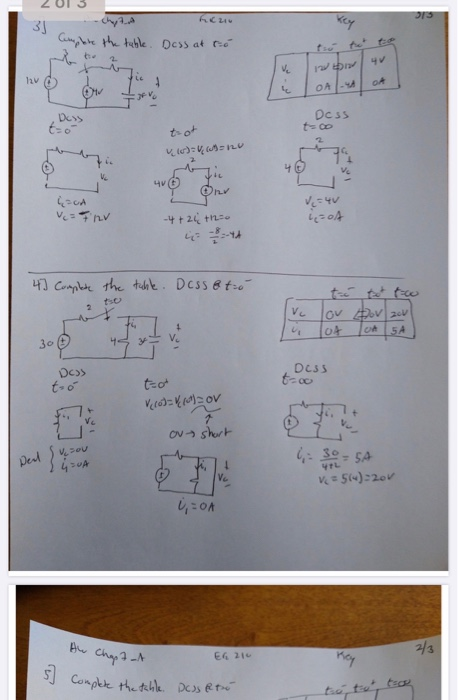 2 of 3
3]
Chp 7-A
EG 210
Key
3/3
Complete the table. DCSS at t=0⁻
t=0⁻ t=0⁺ t=∞
Vc 12V 12V 4V
ic 0A -4A 0A
12V
3
t=0
2
ic
4V
Vc
DCSS
t=0⁻
ic
Vc
ic=0A
Vc=+12V
t=0⁺
Vc(0⁺)=Vc(0⁻)=12V
2
ic
4V
12V
-4+2ic+12=0
ic= -8/2 =-4A
DCSS
t=∞
2
ic
4
Vc
Vc=4V
ic=0A
4] Complete the table. DCSS @ t=0⁻
t=0⁻ t=0⁺ t=∞
Vc 0V 0V 20V
i₁ 0A 0A 5A
2
t=0
30
4
i₁
Vc
DCSS
t=0⁻
i₁
Vc
Dead
Vc=0V
i₁=0A
t=0⁺
Vc(0⁺)=Vc(0⁻)=0V
0V → short
i₁
Vc
i₁=0A
DCSS
t=∞
i₁
Vc
i₁= 30/4+2 = 5A
Vc=5(4)=20V
HW Chap 7-A
EG 210
Key
2/3
5] Complete the table. DCSS @ t=0⁻
t=0⁻ t=0⁺ t=∞